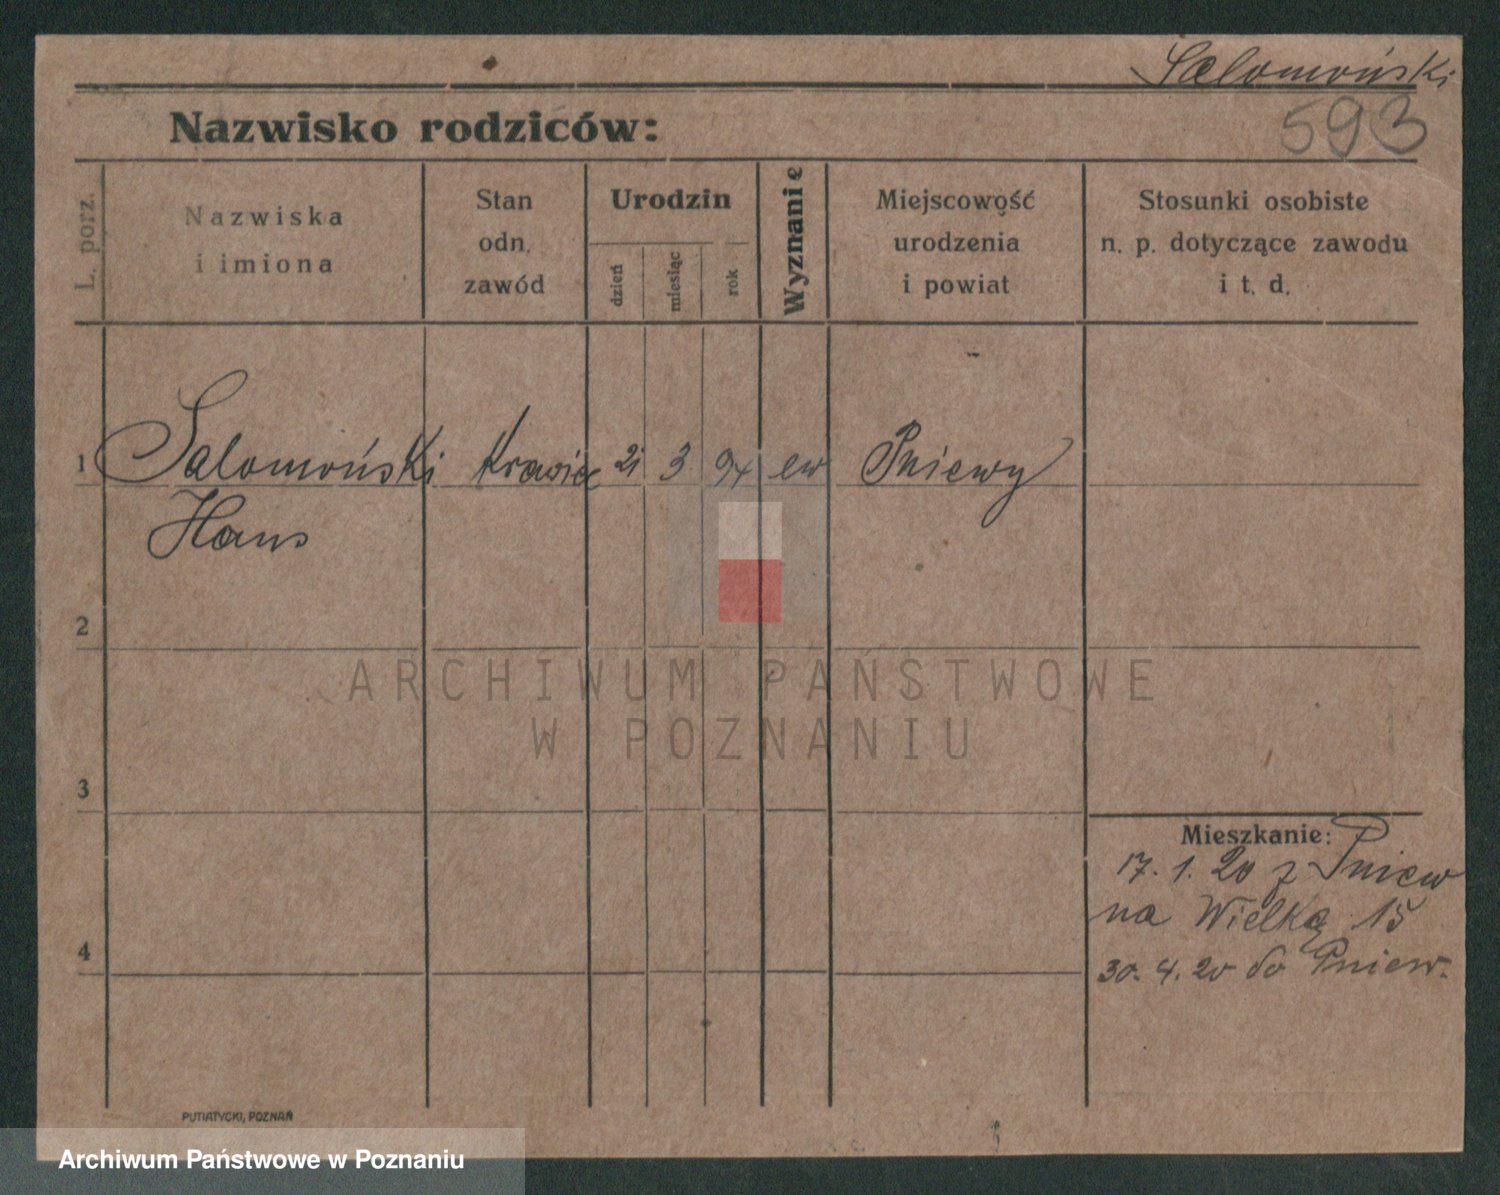 Salomoński
593
Nazwisko rodziców:
L. porz.
Nazwiska
i imiona
Stan
odn.
zawód
Urodzin
dzień
miesiąc
rok
Wyznanie
Miejscowość
urodzenia
i powiat
Stosunki osobiste
n. p. dotyczące zawodu
i t. d.
1 Salomoński krawiec 3 ew Pniewy
Hans
2
3
4
Mieszkanie:
17. 1. 20 z Pniew
na Wielką 15
30. 4. 20 do Pniew.
PUTIATYCKI, POZNAŃ
ARCHIWUM PAŃSTWOWE
W POZNANIU
Archiwum Państwowe w Poznaniu